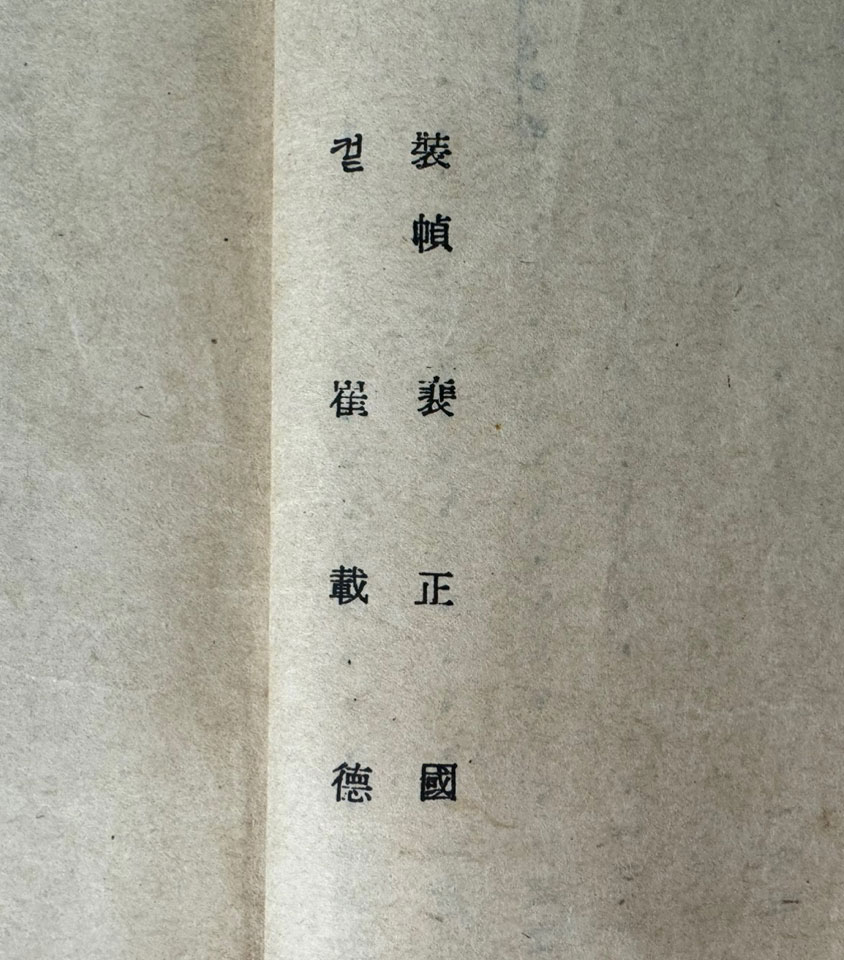 裝幀 裵正國
겉 崔載德